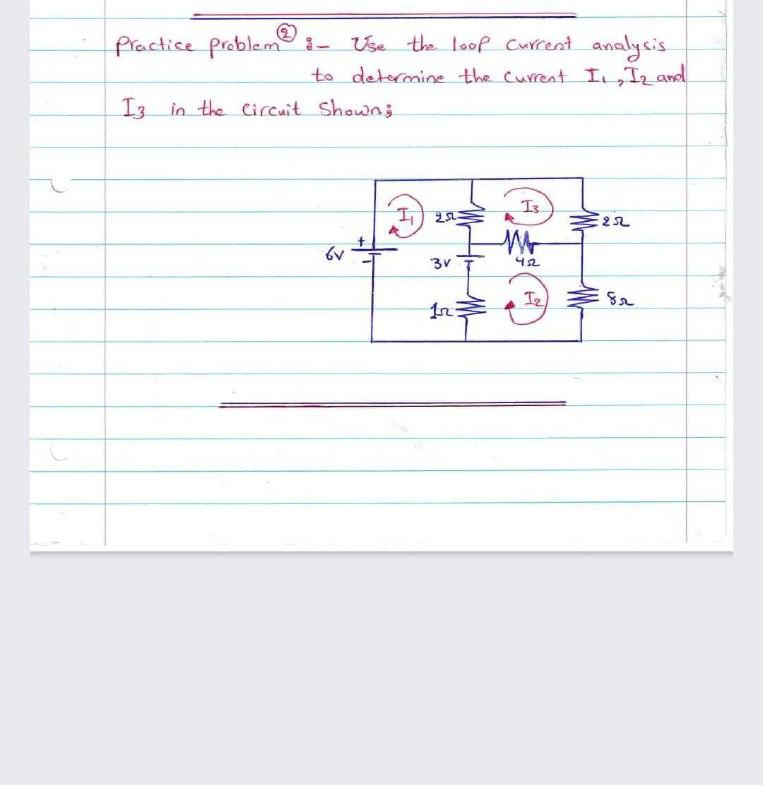 Practice problem ② :- Use the loop current analysis
to determine the current I₁, I₂ and
I3 in the circuit Shown;
I₁ 2Ω I3 2Ω
+
6V 3V 4Ω
-
1Ω I₂ 8Ω